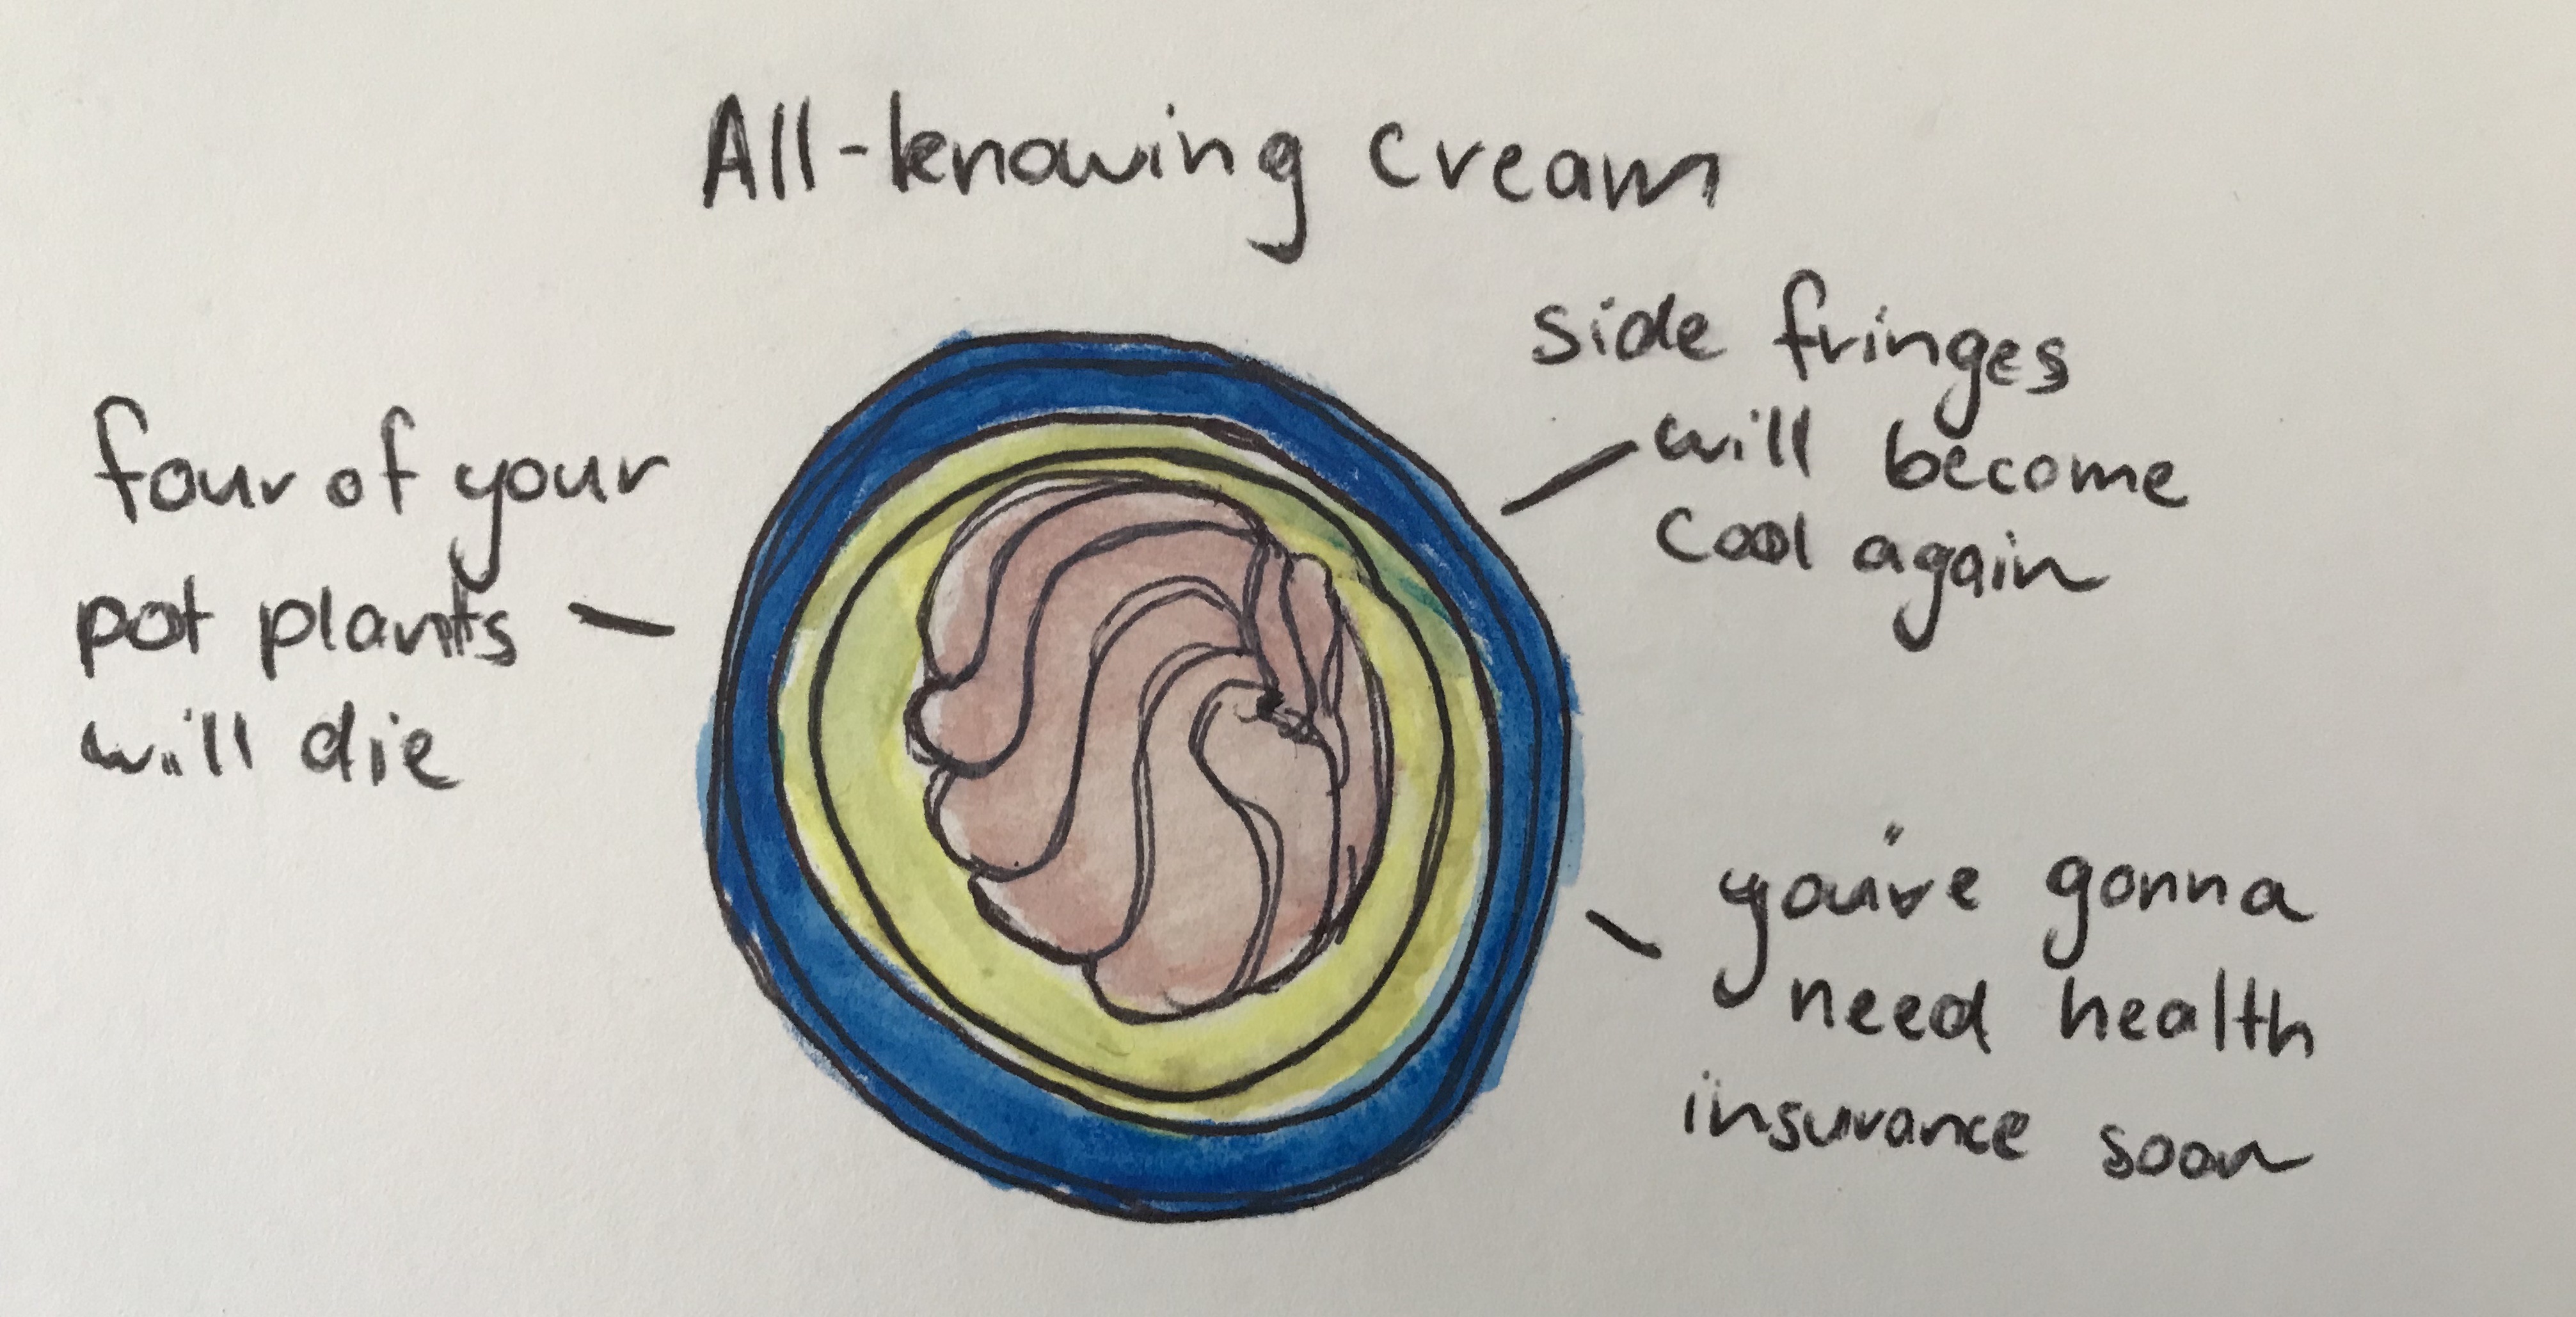 All-knowing cream
side fringes
will become
cool again
four of your
pot plants
will die
you're gonna
need health
insurance soon